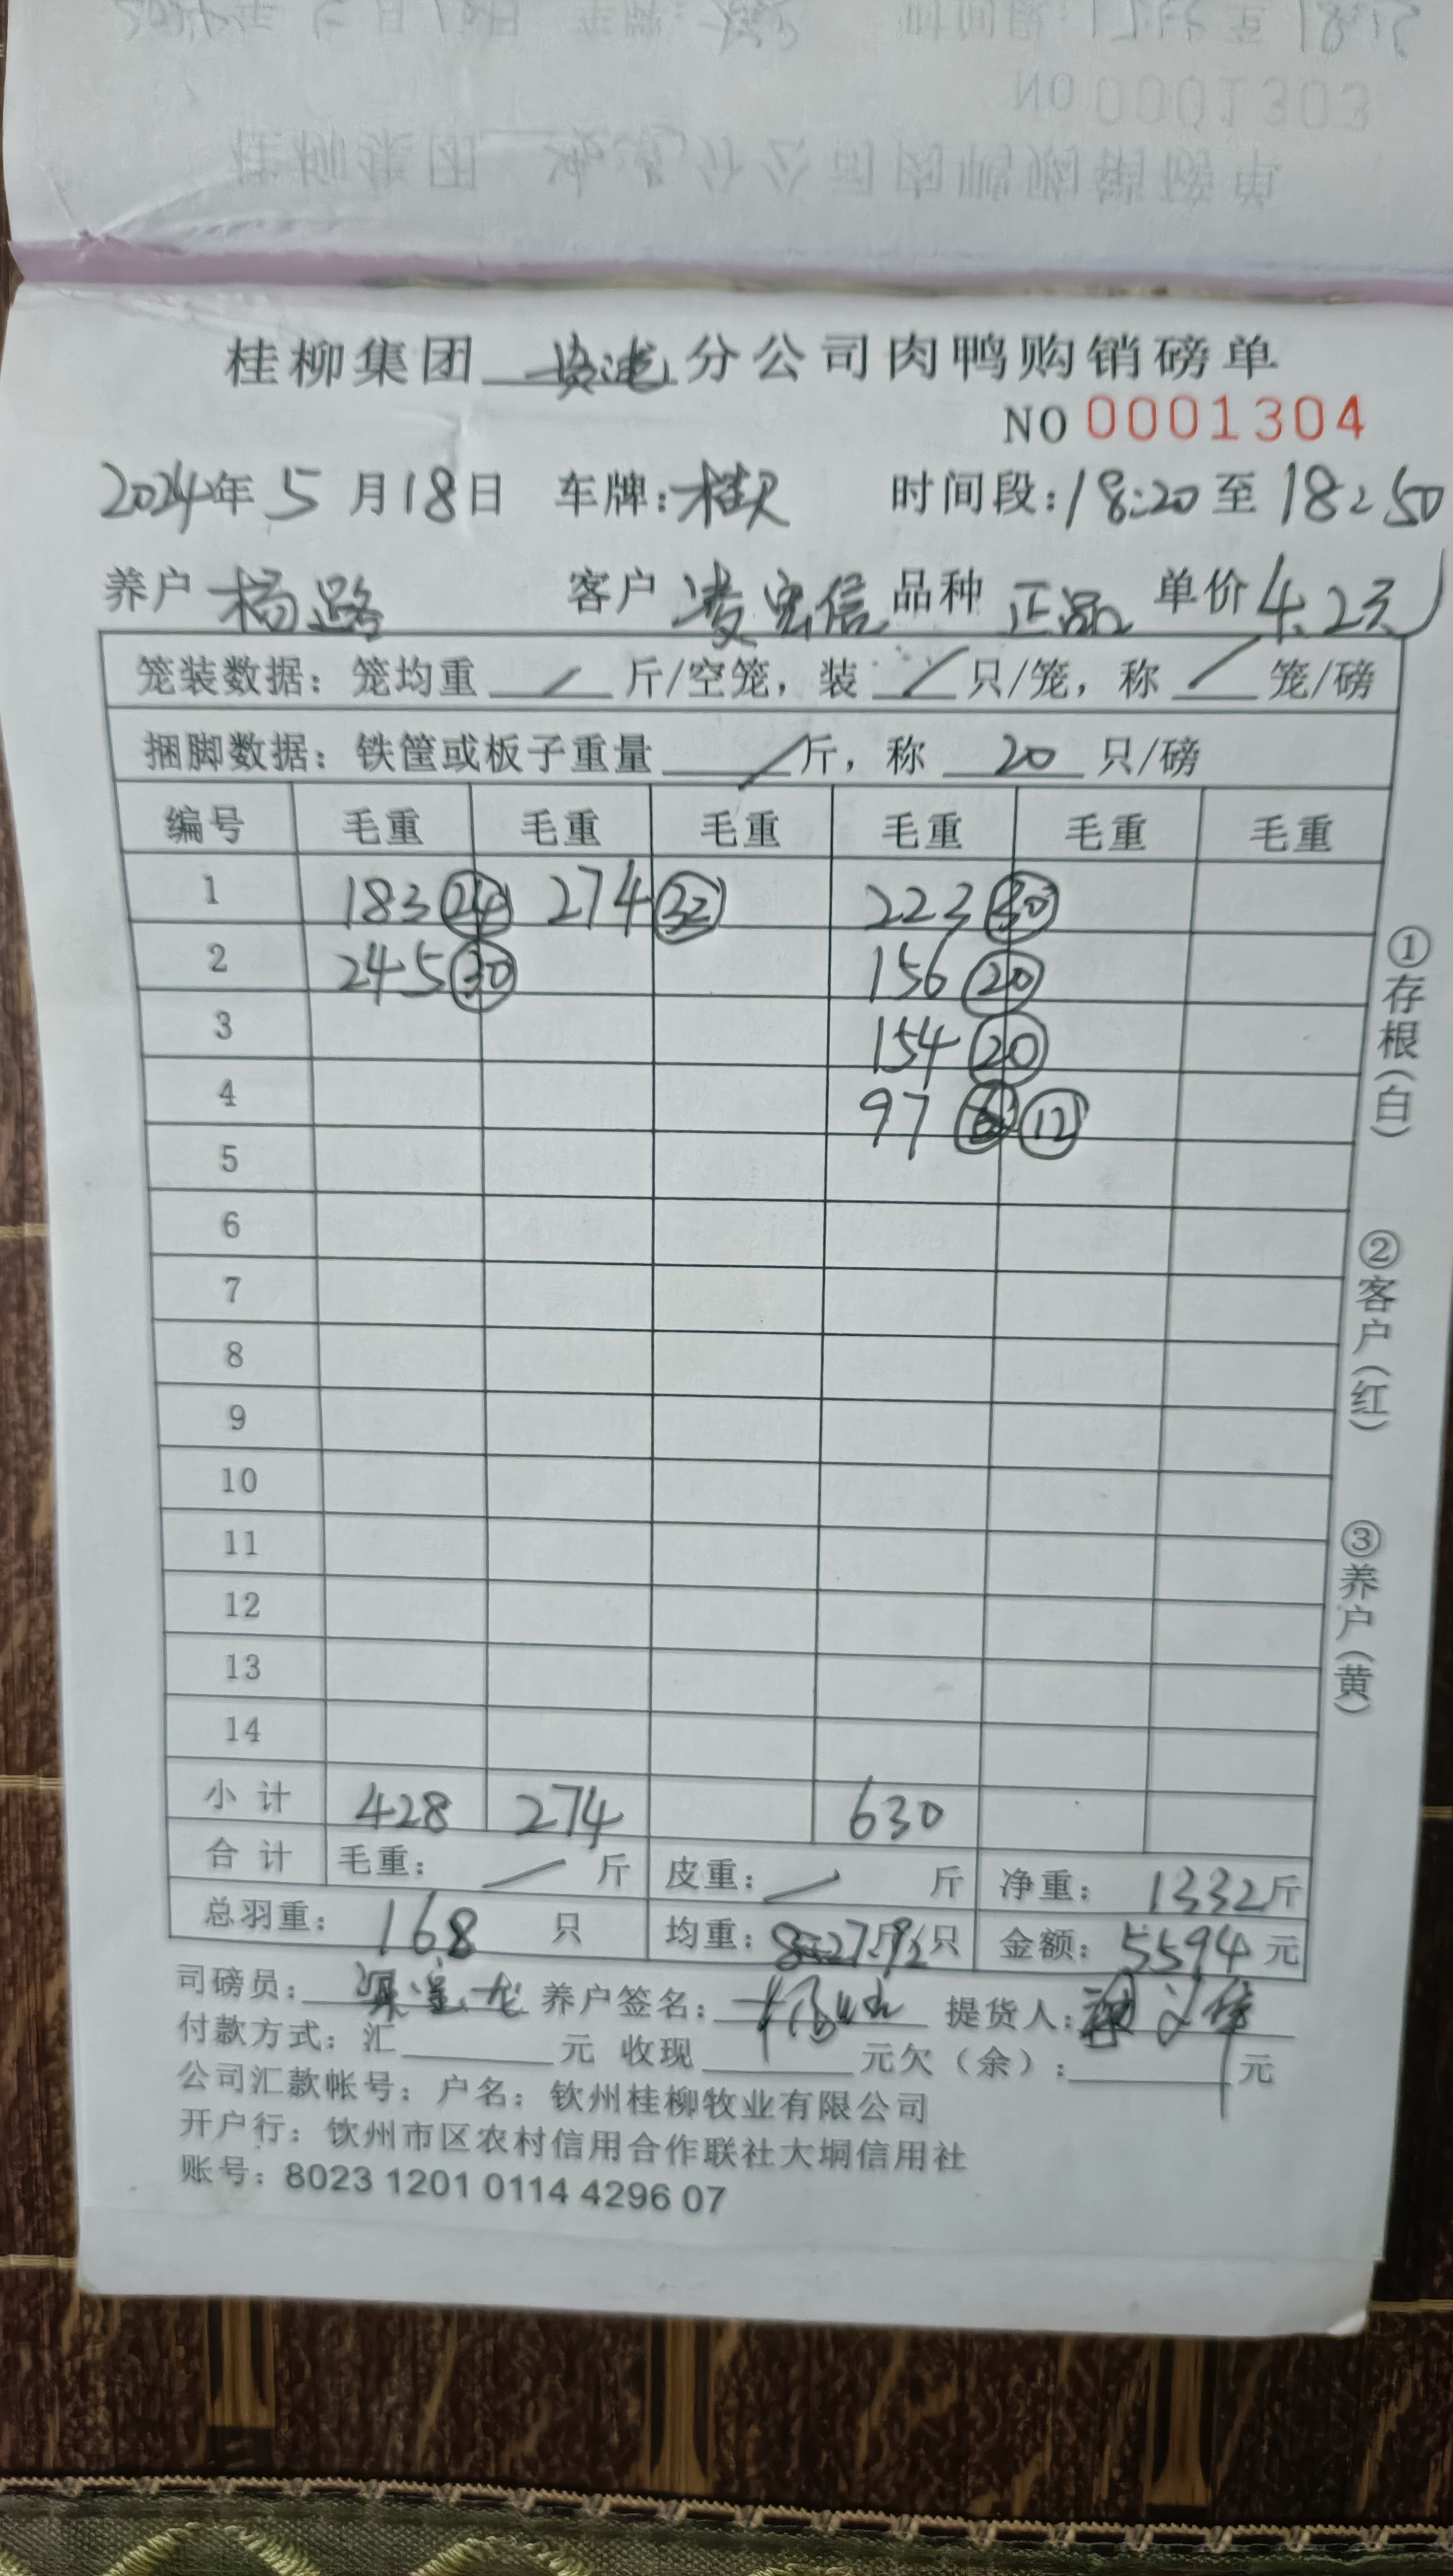 NO 0001303
桂柳集团 分公司肉鸭购销磅单
NO 0001304
2024年 5 月 18 日 车牌: 桂 时间段: 18:20 至 18:50
养户 杨路 客户 凌宏信 品种 正品 单价 4.2元
笼装数据: 笼均重 / 斤/空笼, 装 / 只/笼, 称 / 笼/磅
捆脚数据: 铁筐或板子重量 / 斤, 称 20 只/磅
编号 毛重 毛重 毛重 毛重 毛重 毛重
1 183 24 274 32 223 30
2 245 30 156 20
3 154 20
4 97 12
5
6
7
8
9
10
11
12
13
14
小 计 428 274 630
合 计 毛重: / 斤 皮重: / 斤 净重: 1332 斤
总羽重: 168 只 均重: 只 金额: 5594 元
司磅员: 养户签名: 提货人:
付款方式: 汇 元 收现 元欠(余): 元
公司汇款帐号: 户名: 钦州桂柳牧业有限公司
开户行: 钦州市区农村信用合作联社大垌信用社
账号: 8023 1201 0114 4296 07
①存根(白)
②客户(红)
③养户(黄)